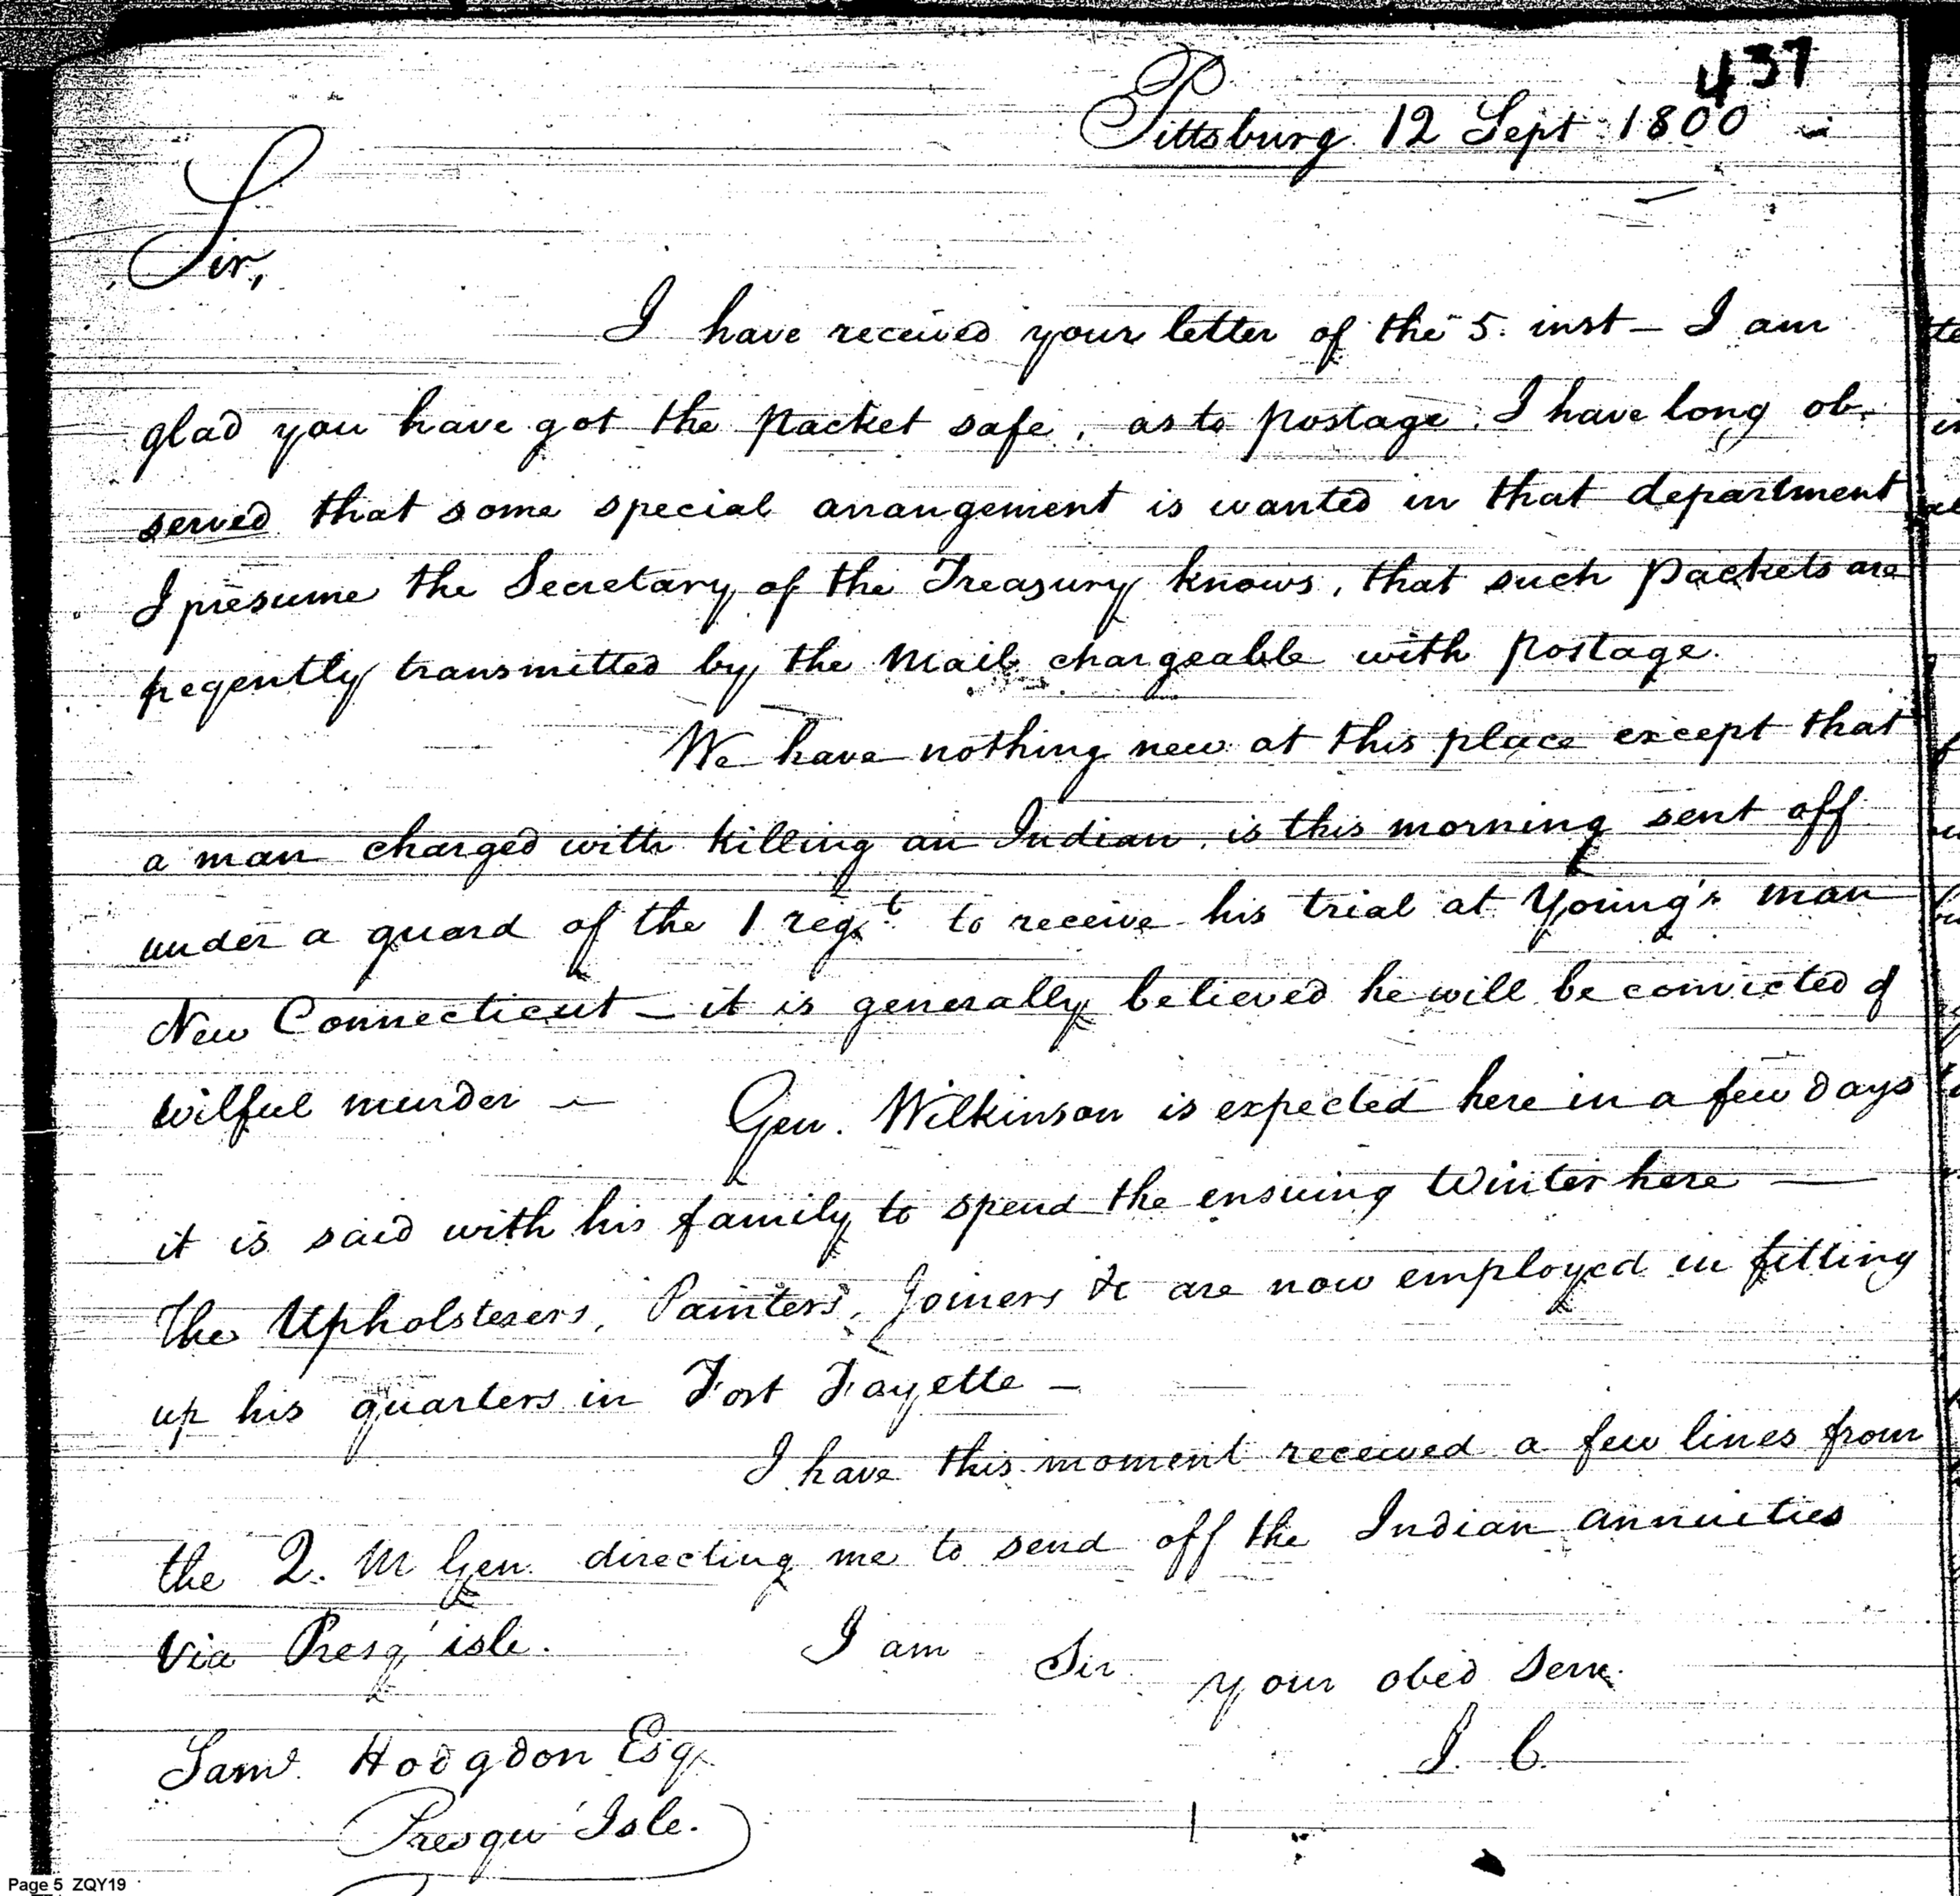 437
Pittsburg 12 Sept 1800
Sir,
I have received your letter of the 5. inst — I am
glad you have got the packet safe, as to postage, I have long ob-
served that some special arrangement is wanted in that department
I presume the Secretary of the Treasury knows, that such packets are
transmitted by the Mail chargeable with postage.
We have nothing new at this place except that
a man charged with killing an Indian, is this morning sent off
under a guard of the 1 regt. to receive his trial at Young's man
New Connecticut — it is generally believed he will be convicted of
wilful murder — Gen. Wilkinson is expected here in a few days
it is said with his family to spend the ensuing Winter here —
The Upholsterers, Painters, Joiners &c are now employed in fitting
up his quarters in Fort Fayette —
I have this moment received a few lines from
the Q. M Gen. directing me to send off the Indian annuities
Via Presq' isle. I am Sir your obed Serv.
J. C.
Saml. Hodgdon Esq.
Presqu' Isle.
Page 5 ZQY19